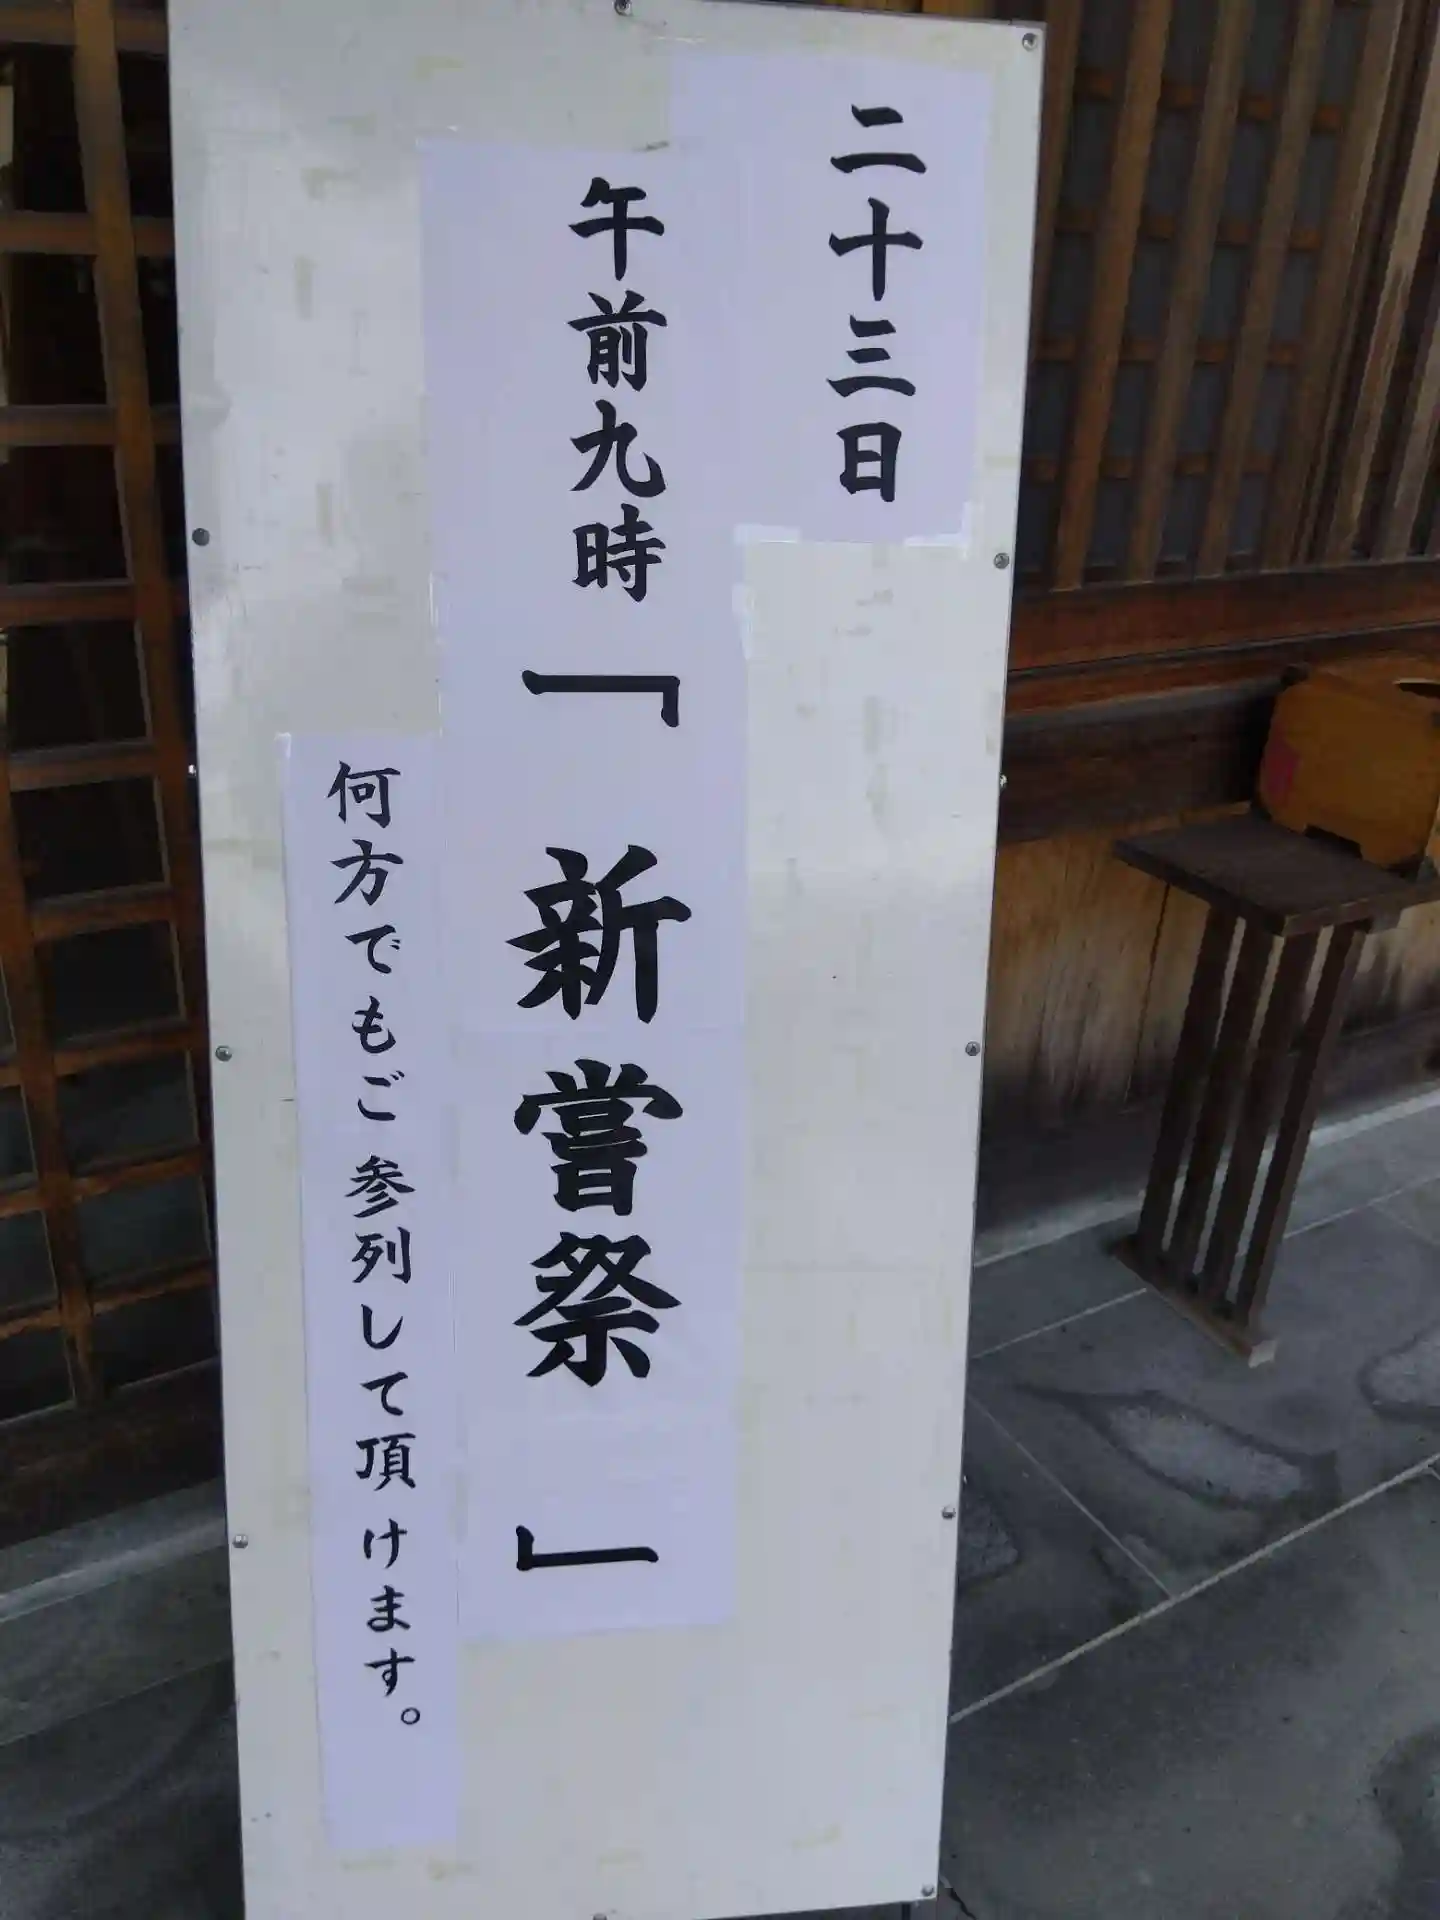 二十三日
午前九時「新嘗祭」
何方でもご参列して頂けます。